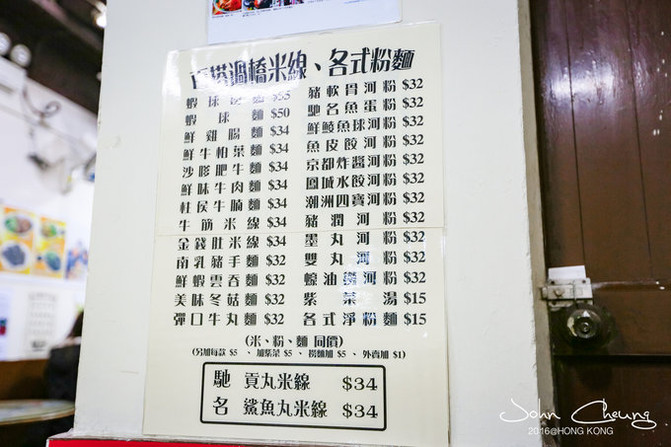 過橋米線、各式粉麵
蝦球 麵
蝦球麵 $50
鮮雞腸麵 $34
鮮牛柏葉麵 $34
沙嗲肥牛麵 $34
鮮味牛肉麵 $34
柱侯牛腩麵 $34
牛筋米線 $34
金錢肚米線 $34
南乳豬手麵 $32
鮮蝦雲吞麵 $32
美味冬菇麵 $32
彈口牛丸麵 $32
豬軟骨河粉 $32
馳名魚蛋粉 $32
鮮鯪魚球河粉 $32
魚皮餃河粉 $32
京都炸醬河粉 $32
鳳城水餃河粉 $32
潮洲四寶河粉 $32
豬潤河粉 $32
墨丸河粉 $32
雙丸河粉 $32
蠔油撈河粉 $32
紫菜湯 $15
各式淨粉麵 $15
(米、粉、麵 同價)
(另加每款 $5 、 加紫菜 $5 、 撈麵加 $5 、 外賣加 $1)
馳名
貢丸米線 $34
鯊魚丸米線 $34
John Cheung
2016@HONG KONG